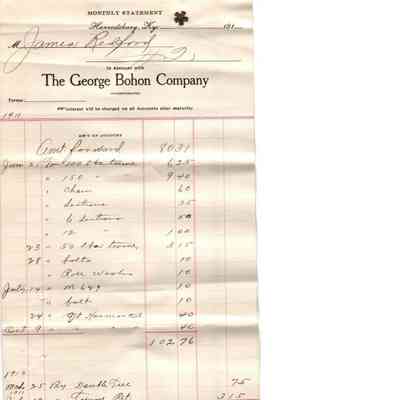 MONTHLY STATEMENT
Harrodsburg, Ky., 191
M James Redford
In account with
The George Bohon Company
INCORPORATED
Terms:
Interest will be charged on all Accounts after maturity.
1911
AM'T OF ACCOUNT
Amt forward 80 31
June 21 To 100 lbs twine 6 25
" 150 " " 9 40
" Chain 60
" Sections 25
" 6 Sections 50
" 12 " 1 00
23 " 50 lbs twine 3 15
28 " bolts 10
" Roll Washer 10
July 14 " M 649 10
" bolt 10
24 " 40
Oct 9 " " 40
102 76
1912
25 By Double Tree 75
3 15